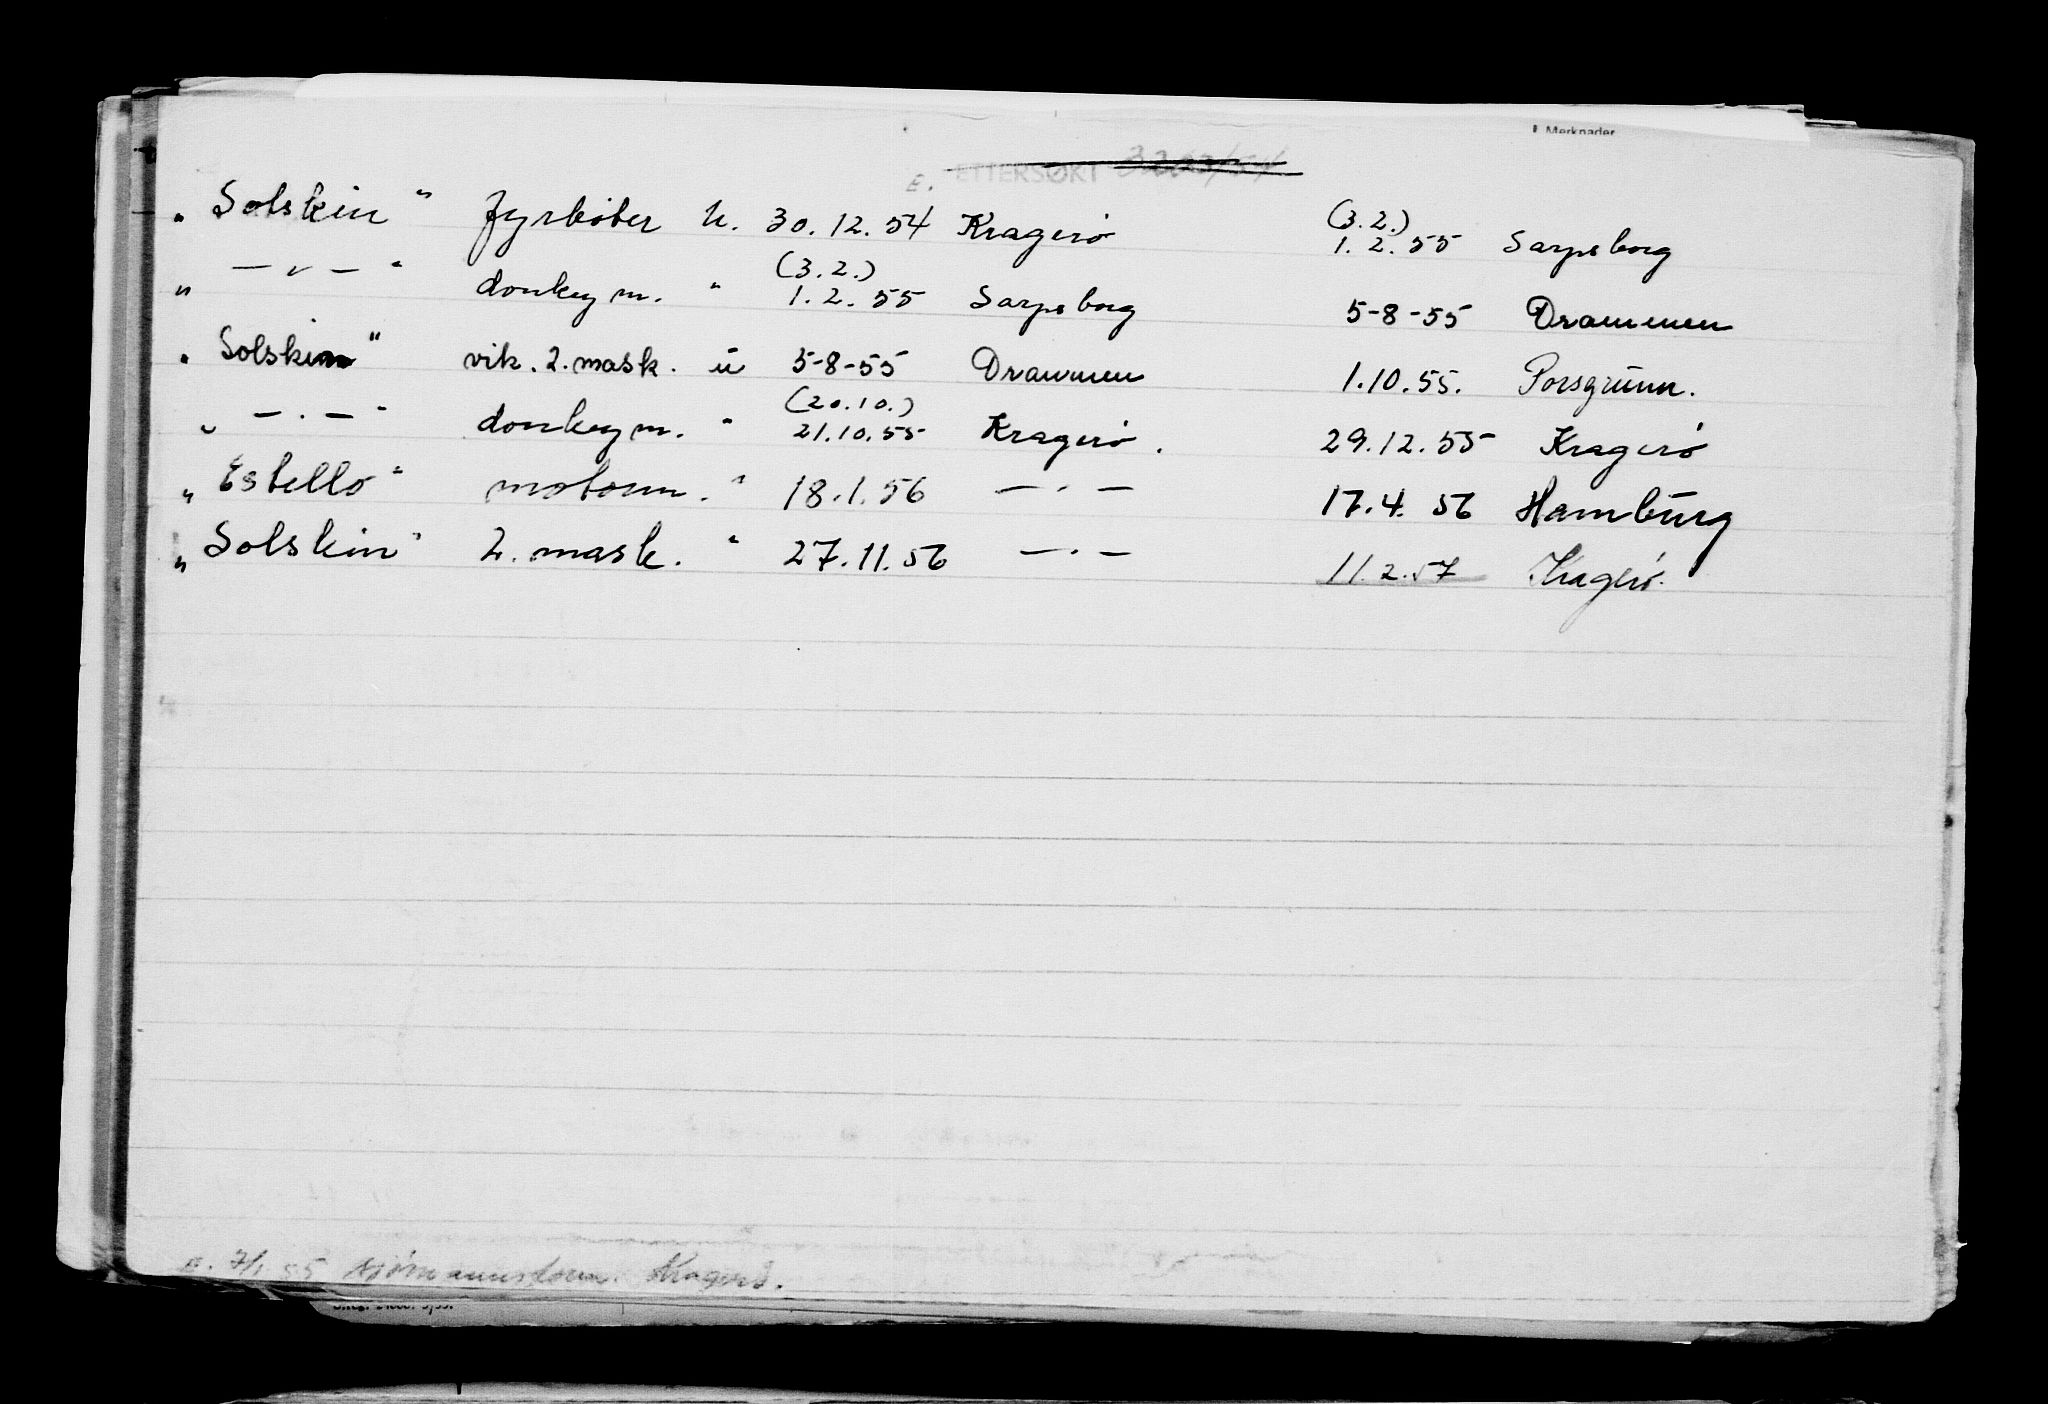 Merknader
E. ETTERSØKT
„Solskin" fyrböter u. 30.12.54 Kragerö (3.2.) 1.2.55 Sarpsborg
„ — „ — " donkeym. " (3.2.) 1.2.55 Sarpsborg 5-8-55 Drammen
„Solskinn" vik. 2. mask. u 5-8-55 Drammen 1.10.55. Porsgrunn.
„ — . — " donkeym. " (20.10.) 21.10.55 Kragerö. 29.12.55 Kragerö
„Estello" motorm. " 18.1.56 — . — 17.4.56 Hamburg
„Solskin" 2. mask. " 27.11.56 — . — 11.2.57 Kragerö.
E. 7/1 55 sjømannskonn. Kragerö.